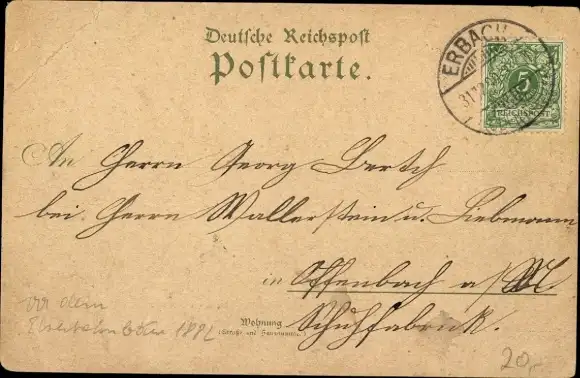 Deutsche Reichspost
Postkarte.
ERBACH
31.12
5
REICHSPOST
An Herrn Georg Bertsch
bei Herrn Wallerstein u. Liebmann
in Offenbach a/M
Schuhfabrik.
Wohnung
(Straße und Hausnummer)
vor dem
1882
20,-